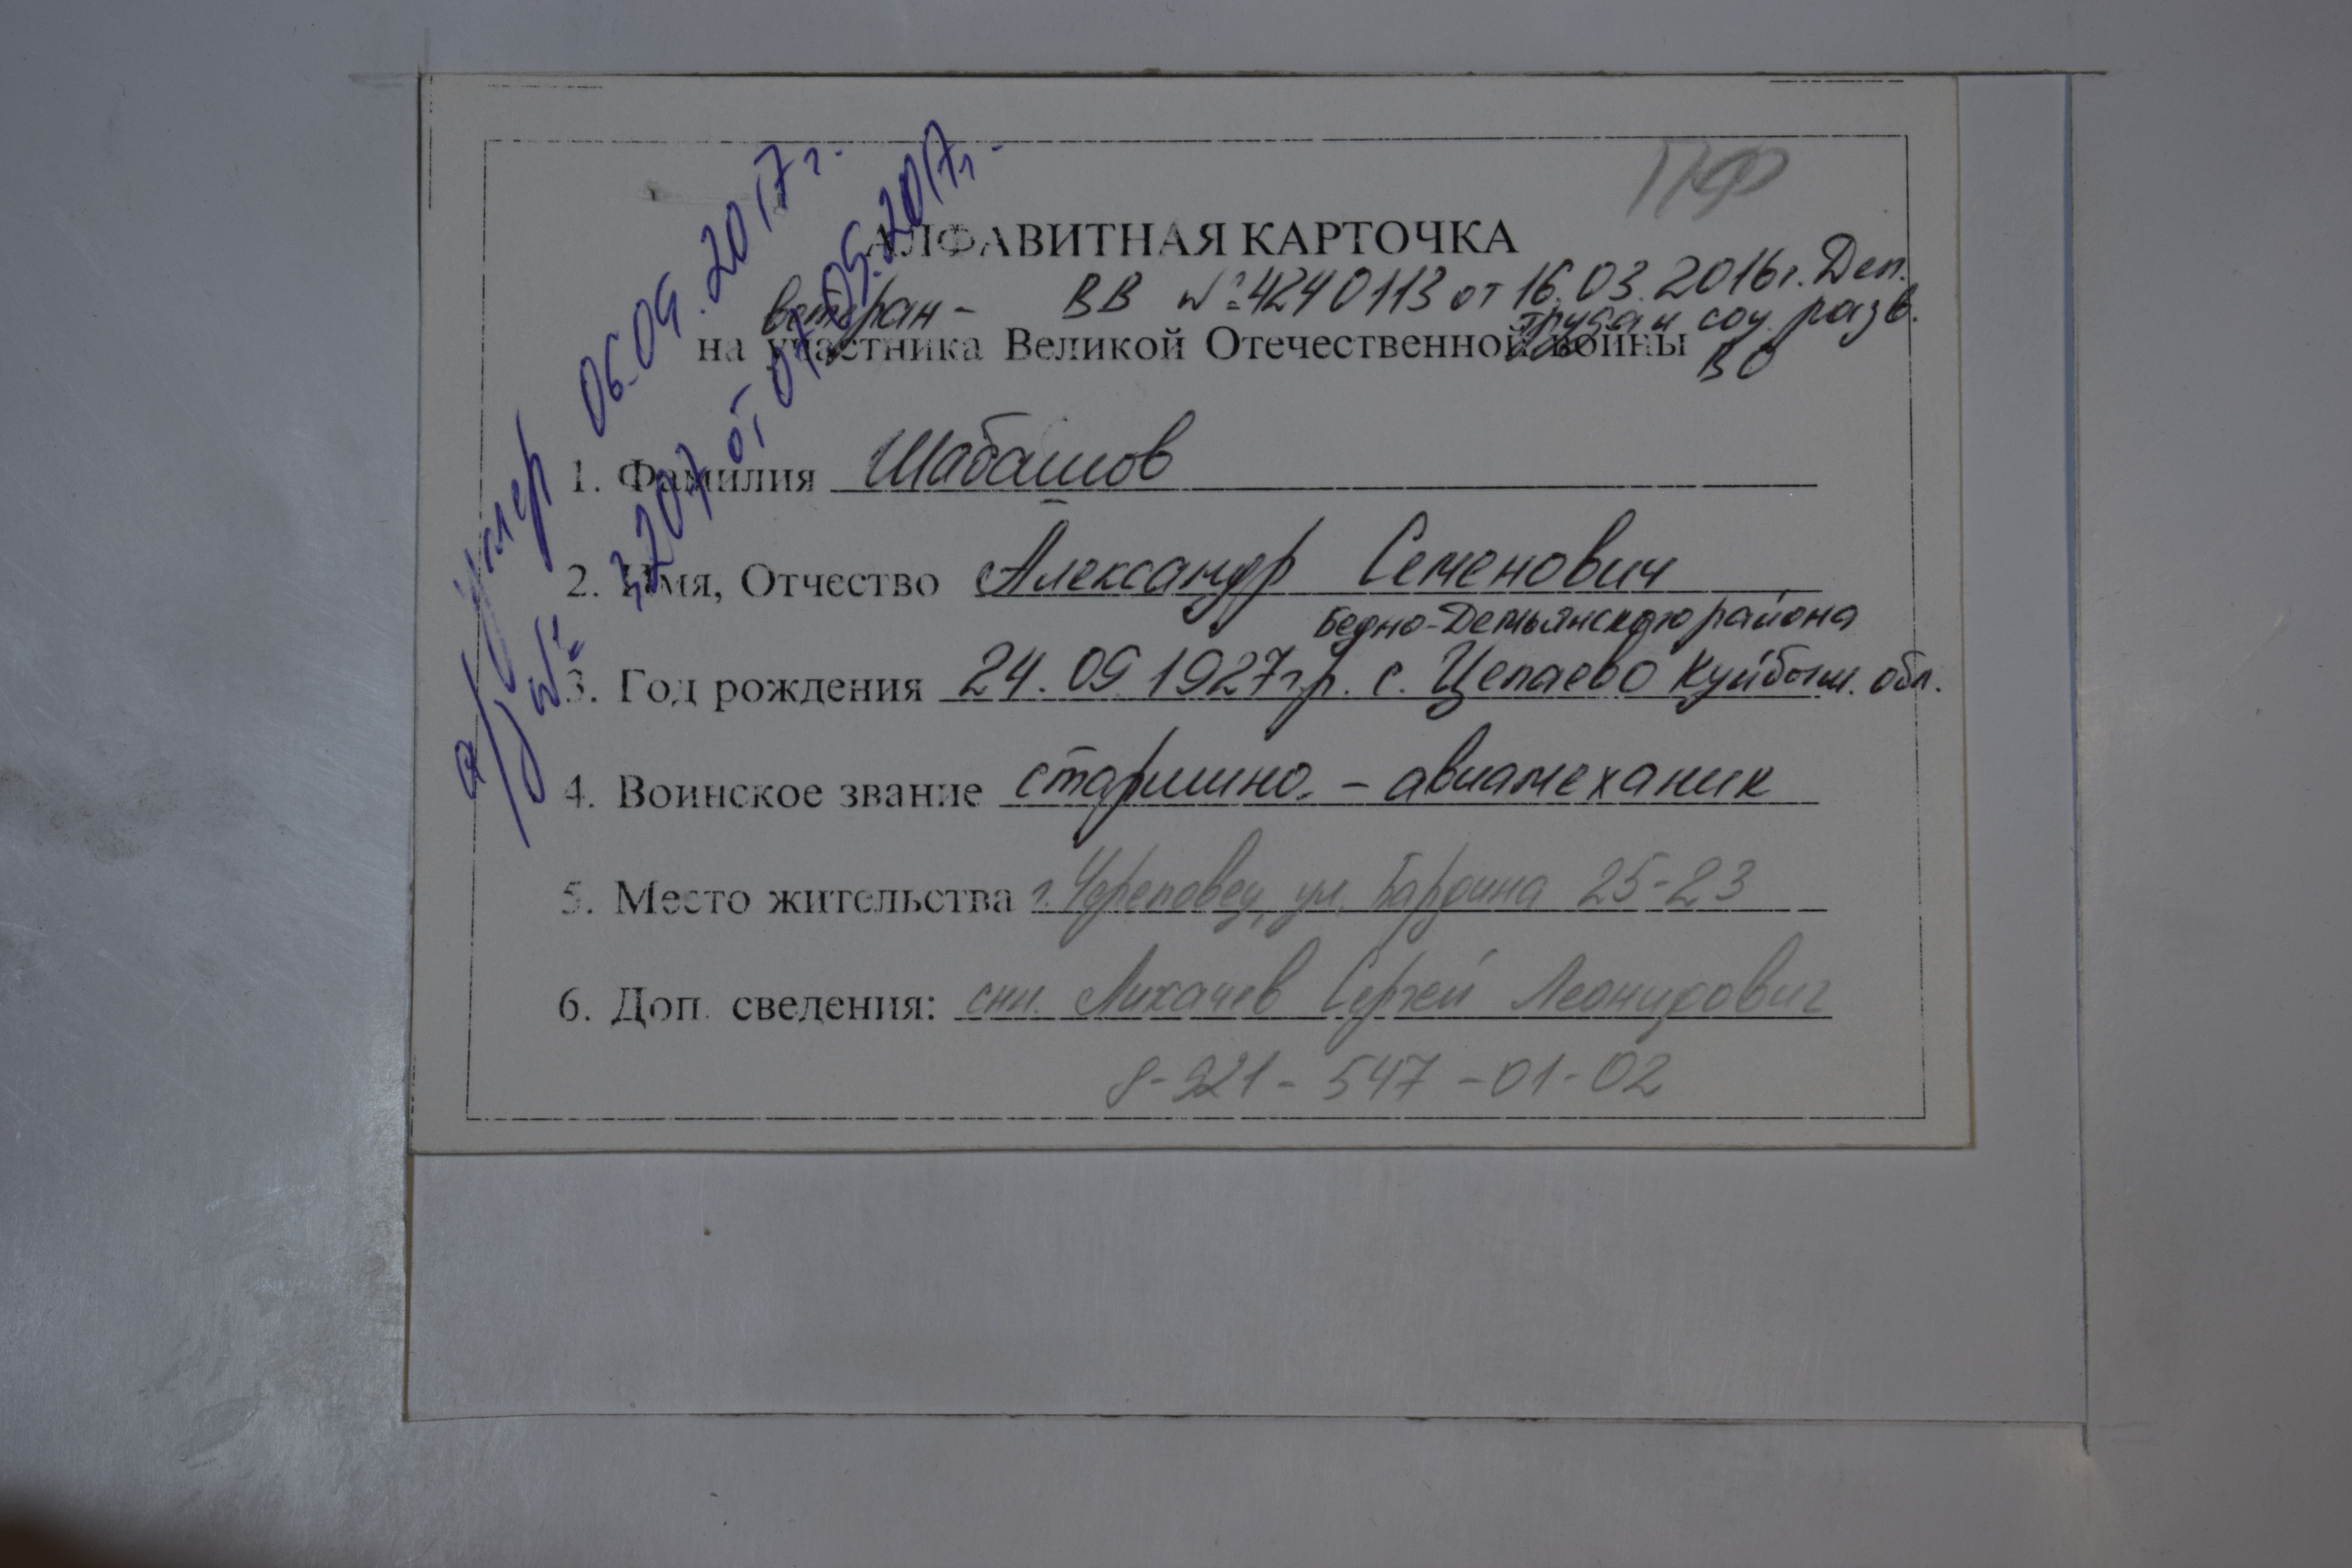 ПФ
АЛФАВИТНАЯ КАРТОЧКА
ветеран - ВВ №4240113 от 16.03.2016г. Деп.
труда и соц. разв.
на участника Великой Отечественной войны
ВО
1. Фамилия Шабашов
2. Имя, Отчество Александр Семенович
Бедно-Демьянского района
3. Год рождения 24.09 1927г.р. с. Цепаево Куйбыш. обл.
4. Воинское звание старшина - авиамеханик
5. Место жительства г. Череповец, ул. Бардина 25-23
6. Доп. сведения: Лихачев Сергей Леонидович
8-921-547-01-02
умер 06.09.2017г.
а/з № 3207 от 07.09.2017г.